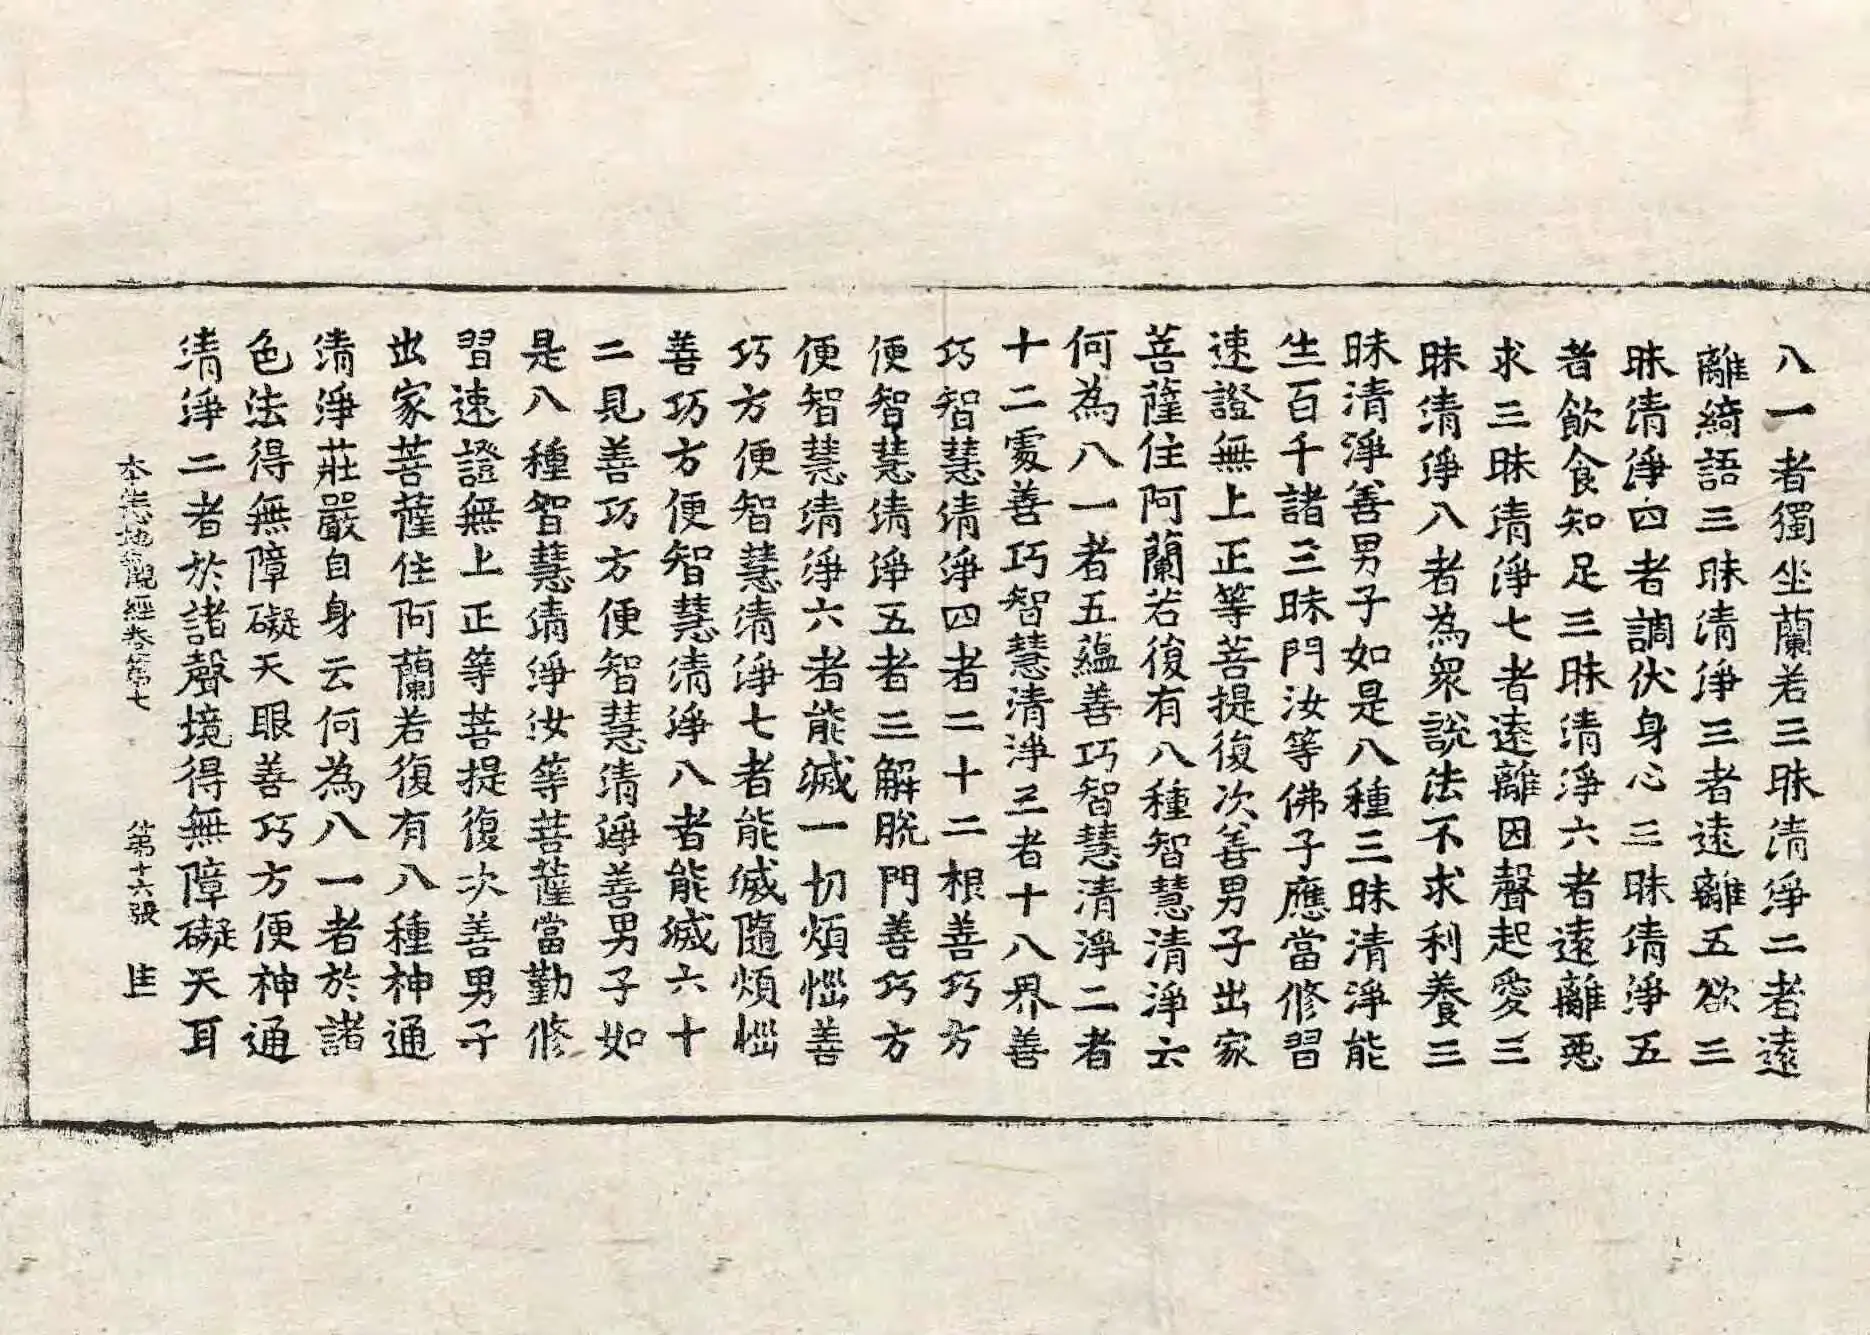 八一者獨坐蘭若三昧清淨二者遠
離綺語三昧清淨三者遠離五欲三
昧清淨四者調伏身心三昧清淨五
者飲食知足三昧清淨六者遠離惡
求三昧清淨七者遠離因聲起愛三
昧清淨八者為衆說法不求利養三
昧清淨善男子如是八種三昧清淨能
生百千諸三昧門汝等佛子應當修習
速證無上正等菩提復次善男子出家
菩薩住阿蘭若復有八種智慧清淨云
何為八一者五蘊善巧智慧清淨二者
十二處善巧智慧清淨三者十八界善
巧智慧清淨四者二十二根善巧方
便智慧清淨五者三解脫門善巧方
便智慧清淨六者能滅一切煩惱善
巧方便智慧清淨七者能滅隨煩惱
善巧方便智慧清淨八者能滅六十
二見善巧方便智慧清淨善男子如
是八種智慧清淨汝等菩薩當勤修
習速證無上正等菩提復次善男子
出家菩薩住阿蘭若復有八種神通
清淨莊嚴自身云何為八一者於諸
色法得無障礙天眼善巧方便神通
清淨二者於諸聲境得無障礙天耳
本生心地觀經卷第七 第十六張